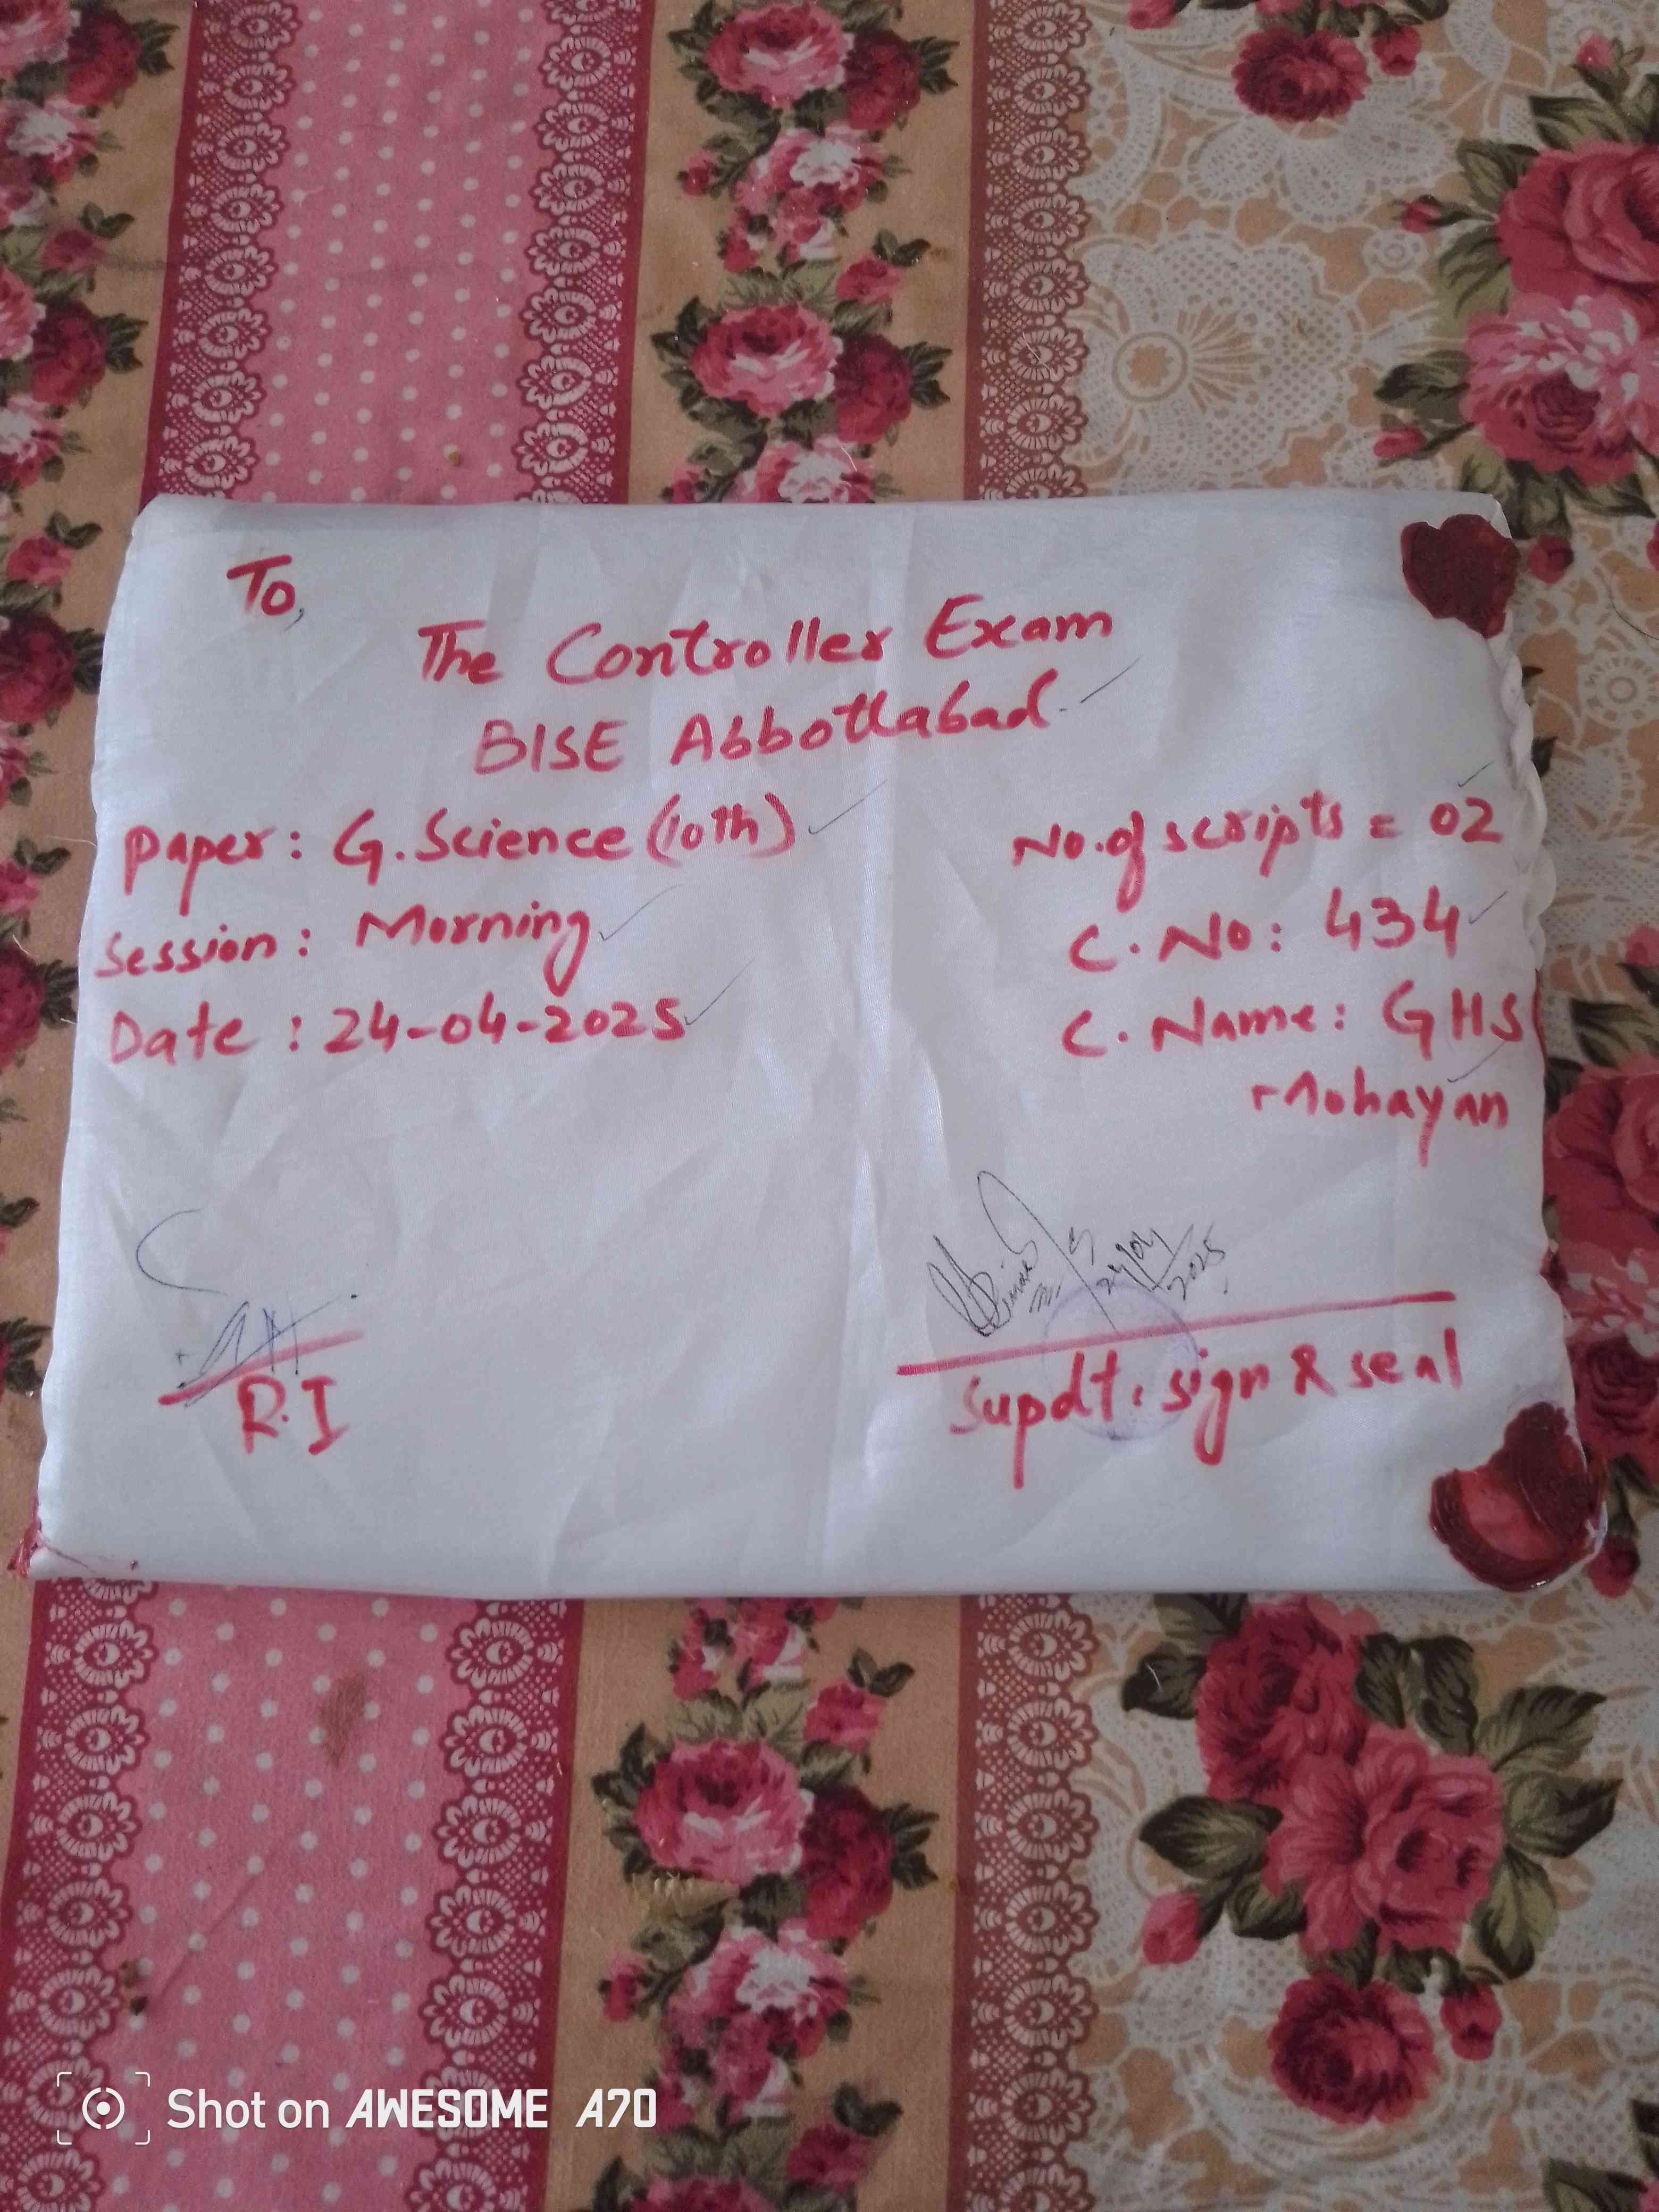 To,
The Controller Exam
BISE Abbottabad
Paper: G.Science (10th)
No. of scripts = 02
Session: Morning
C. No: 434
Date: 24-04-2025
C. Name: GHS
Mohayan
24/04/2025
R.I
Supdt: sign & seal
Shot on AWESOME A70